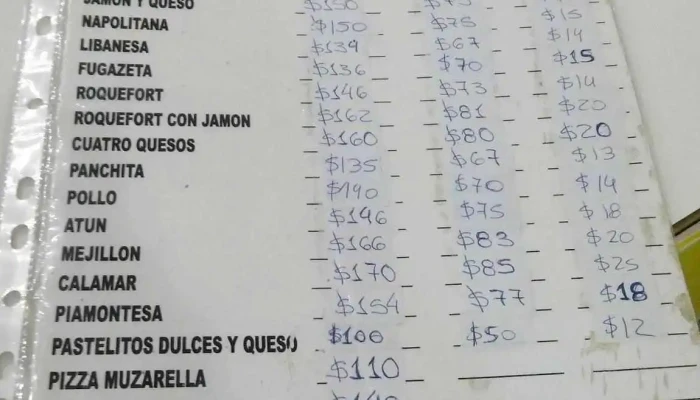 JAMON Y QUESO $150 $75
NAPOLITANA $150 $75 $15
LIBANESA $139 $67 $14
FUGAZETA $136 $70 $15
ROQUEFORT $146 $73 $14
ROQUEFORT CON JAMON $162 $81 $20
CUATRO QUESOS $160 $80 $20
PANCHITA $135 $67 $13
POLLO $140 $70 $14
ATUN $146 $75 $18
MEJILLON $166 $83 $20
CALAMAR $170 $85 $25
PIAMONTESA $154 $77 $18
PASTELITOS DULCES Y QUESO $100 $50 $12
PIZZA MUZARELLA $110